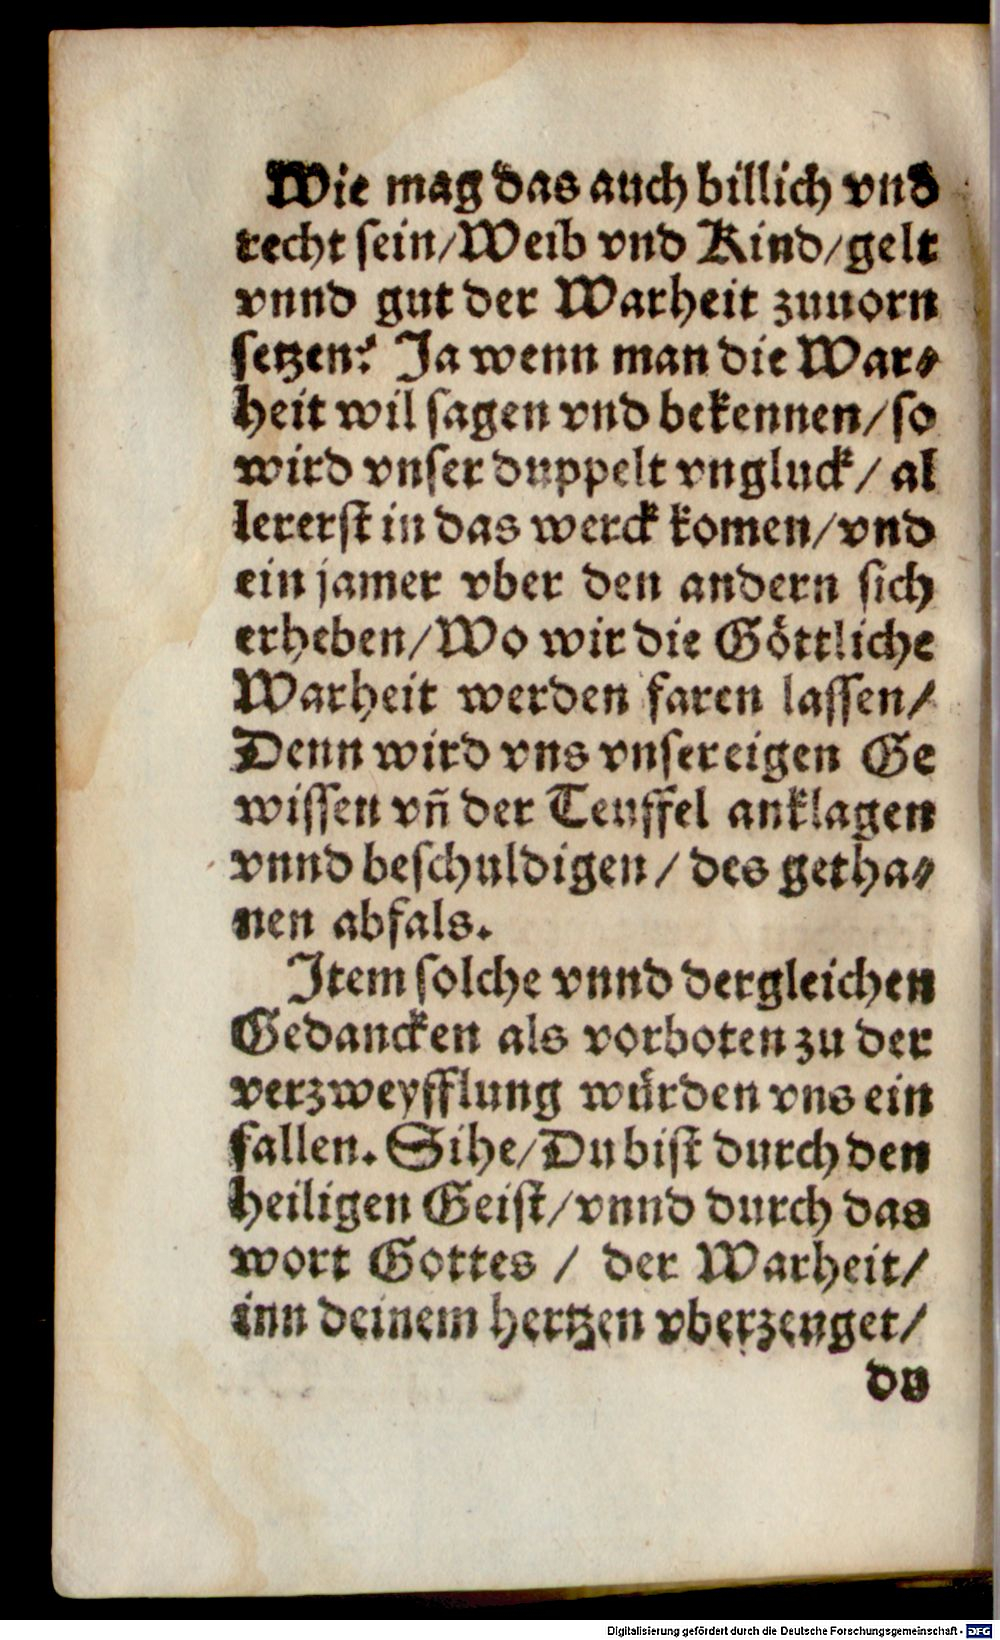 Wie mag das auch billich vnd
recht sein/Weib vnd Kind/gelt
vnnd gut der Warheit zuuorn
setzen? Ja wenn man die War⸗
heit wil sagen vnd bekennen/so
wird vnser duppelt vngluck/ al
lererst in das werck komen/vnd
ein jamer vber den andern sich
erheben/Wo wir die Göttliche
Warheit werden faren lassen/
Denn wird vns vnser eigen Ge
wissen vñ der Teuffel anklagen
vnnd beschuldigen/ des getha⸗
nen abfals.
Item solche vnnd dergleichen
Gedancken als vorboten zu der
verzweyfflung würden vns ein
fallen. Sihe/Du bist durch den
heiligen Geist/vnnd durch das
wort Gottes / der Warheit/
inn deinem hertzen vberzeuget/
du
Digitalisierung gefördert durch die Deutsche Forschungsgemeinschaft - DFG